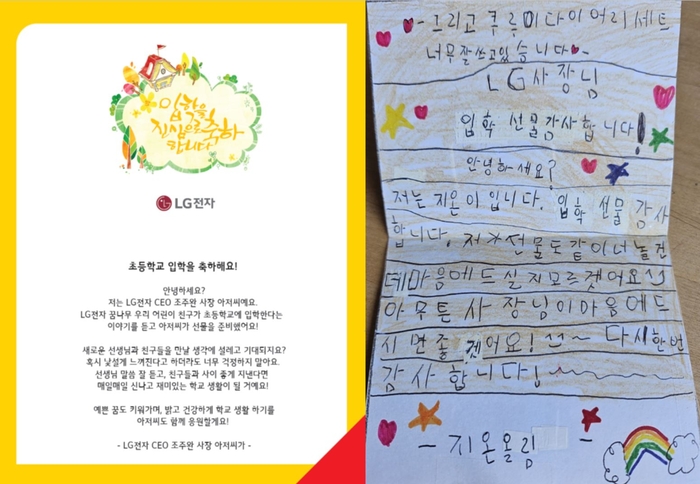 입학을
진심으로 축하
합니다
LG전자
초등학교 입학을 축하해요!
안녕하세요?
저는 LG전자 CEO 조주완 사장 아저씨예요.
LG전자 꿈나무 우리 어린이 친구가 초등학교에 입학한다는
이야기를 듣고 아저씨가 선물을 준비했어요!
새로운 선생님과 친구들을 만날 생각에 설레고 기대되지요?
혹시 낯설게 느껴진다고 하더라도 너무 걱정하지 말아요.
선생님 말씀 잘 듣고, 친구들과 사이 좋게 지낸다면
매일매일 신나고 재미있는 학교 생활이 될 거예요!
예쁜 꿈도 키워가며, 밝고 건강하게 학교 생활 하기를
아저씨도 함께 응원할게요!
- LG전자 CEO 조주완 사장 아저씨가 -
- 그리고 쿠루미다이어리세트
너무잘쓰고있습니다
LG사장님
입학 선물감사합니다!
안녕하세요?
저는 지온이입니다. 입학 선물 감사
합니다. 저 선물도같이너놓건
데마음에드실지모르겠어요
아무튼사장님이마음에드
시면좋겠어요! ~ 다시한번
감사합니다!
- 지온올림 -